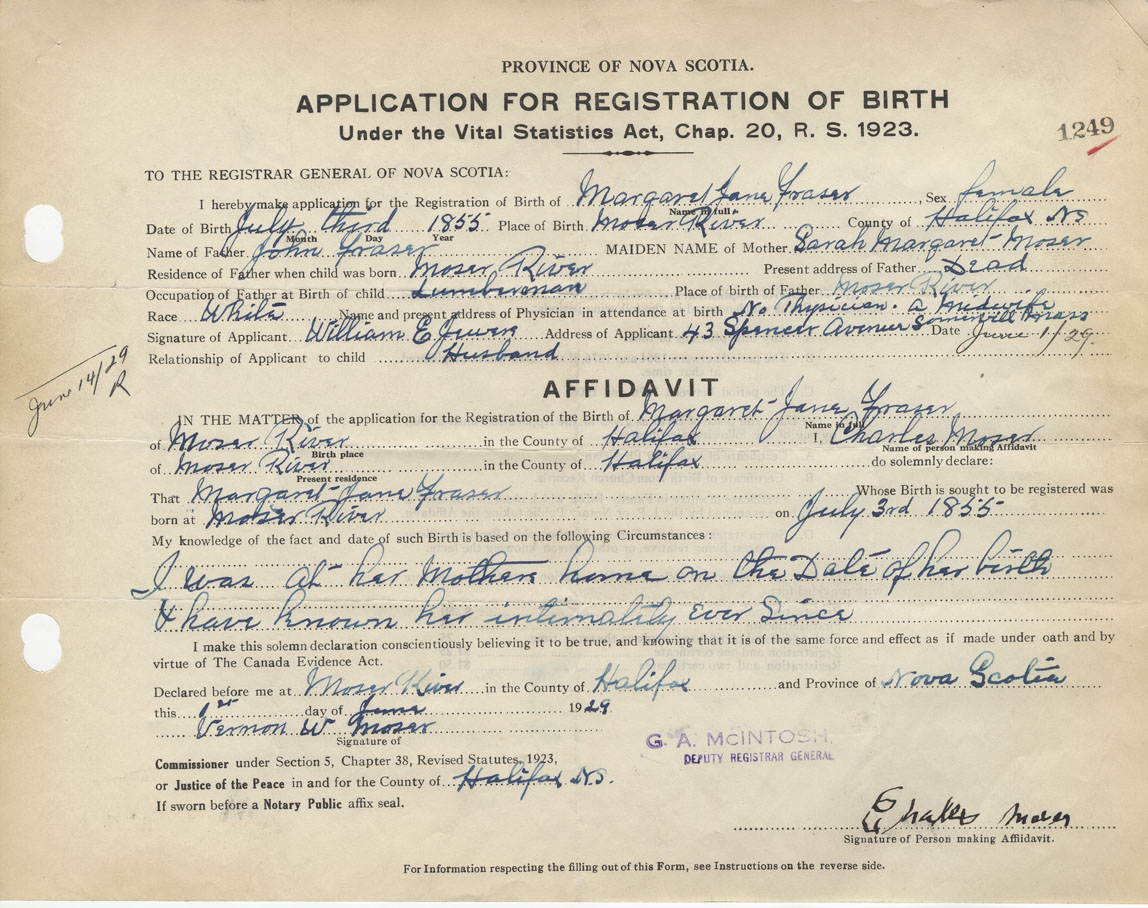 PROVINCE OF NOVA SCOTIA.
APPLICATION FOR REGISTRATION OF BIRTH
Under the Vital Statistics Act, Chap. 20, R. S. 1923.
1249
TO THE REGISTRAR GENERAL OF NOVA SCOTIA:
I hereby make application for the Registration of Birth of Margaret Jane Fraser, Sex female
Name in full
Date of Birth July third 1855 Place of Birth Moser River County of Halifax NS
Month Day Year
Name of Father John Fraser MAIDEN NAME of Mother Sarah Margaret Moser
Residence of Father when child was born Moser River Present address of Father Dead
Occupation of Father at Birth of child Lumberman Place of birth of Father Moser River
Race White Name and present address of Physician in attendance at birth No Physician. a Midwife
Signature of Applicant William E Address of Applicant 43 Spencer Avenue Mass Date June 1/29.
Relationship of Applicant to child Husband
June 14/29
R
AFFIDAVIT
IN THE MATTER of the application for the Registration of the Birth of Margaret Jane Fraser
Name in full
of Moser River in the County of Halifax I, Charles Moser
Birth place Name of person making Affidavit
of Moser River in the County of Halifax do solemnly declare:
Present residence
That Margaret Jane Fraser Whose Birth is sought to be registered was
born at Moser River on July 3rd 1855
My knowledge of the fact and date of such Birth is based on the following Circumstances:
I was at her Mothers home on the Date of her birth
& have known her intimately Ever Since
I make this solemn declaration conscientiously believing it to be true, and knowing that it is of the same force and effect as if made under oath and by
virtue of The Canada Evidence Act.
Declared before me at Moser River in the County of Halifax and Province of Nova Scotia
this 1st day of June 1929
Vernon W Moser
Signature of
G. A. McINTOSH
DEPUTY REGISTRAR GENERAL
Commissioner under Section 5, Chapter 38, Revised Statutes, 1923,
or Justice of the Peace in and for the County of Halifax NS.
If sworn before a Notary Public affix seal.
Charles Moser
Signature of Person making Affiidavit.
For Information respecting the filling out of this Form, see Instructions on the reverse side.